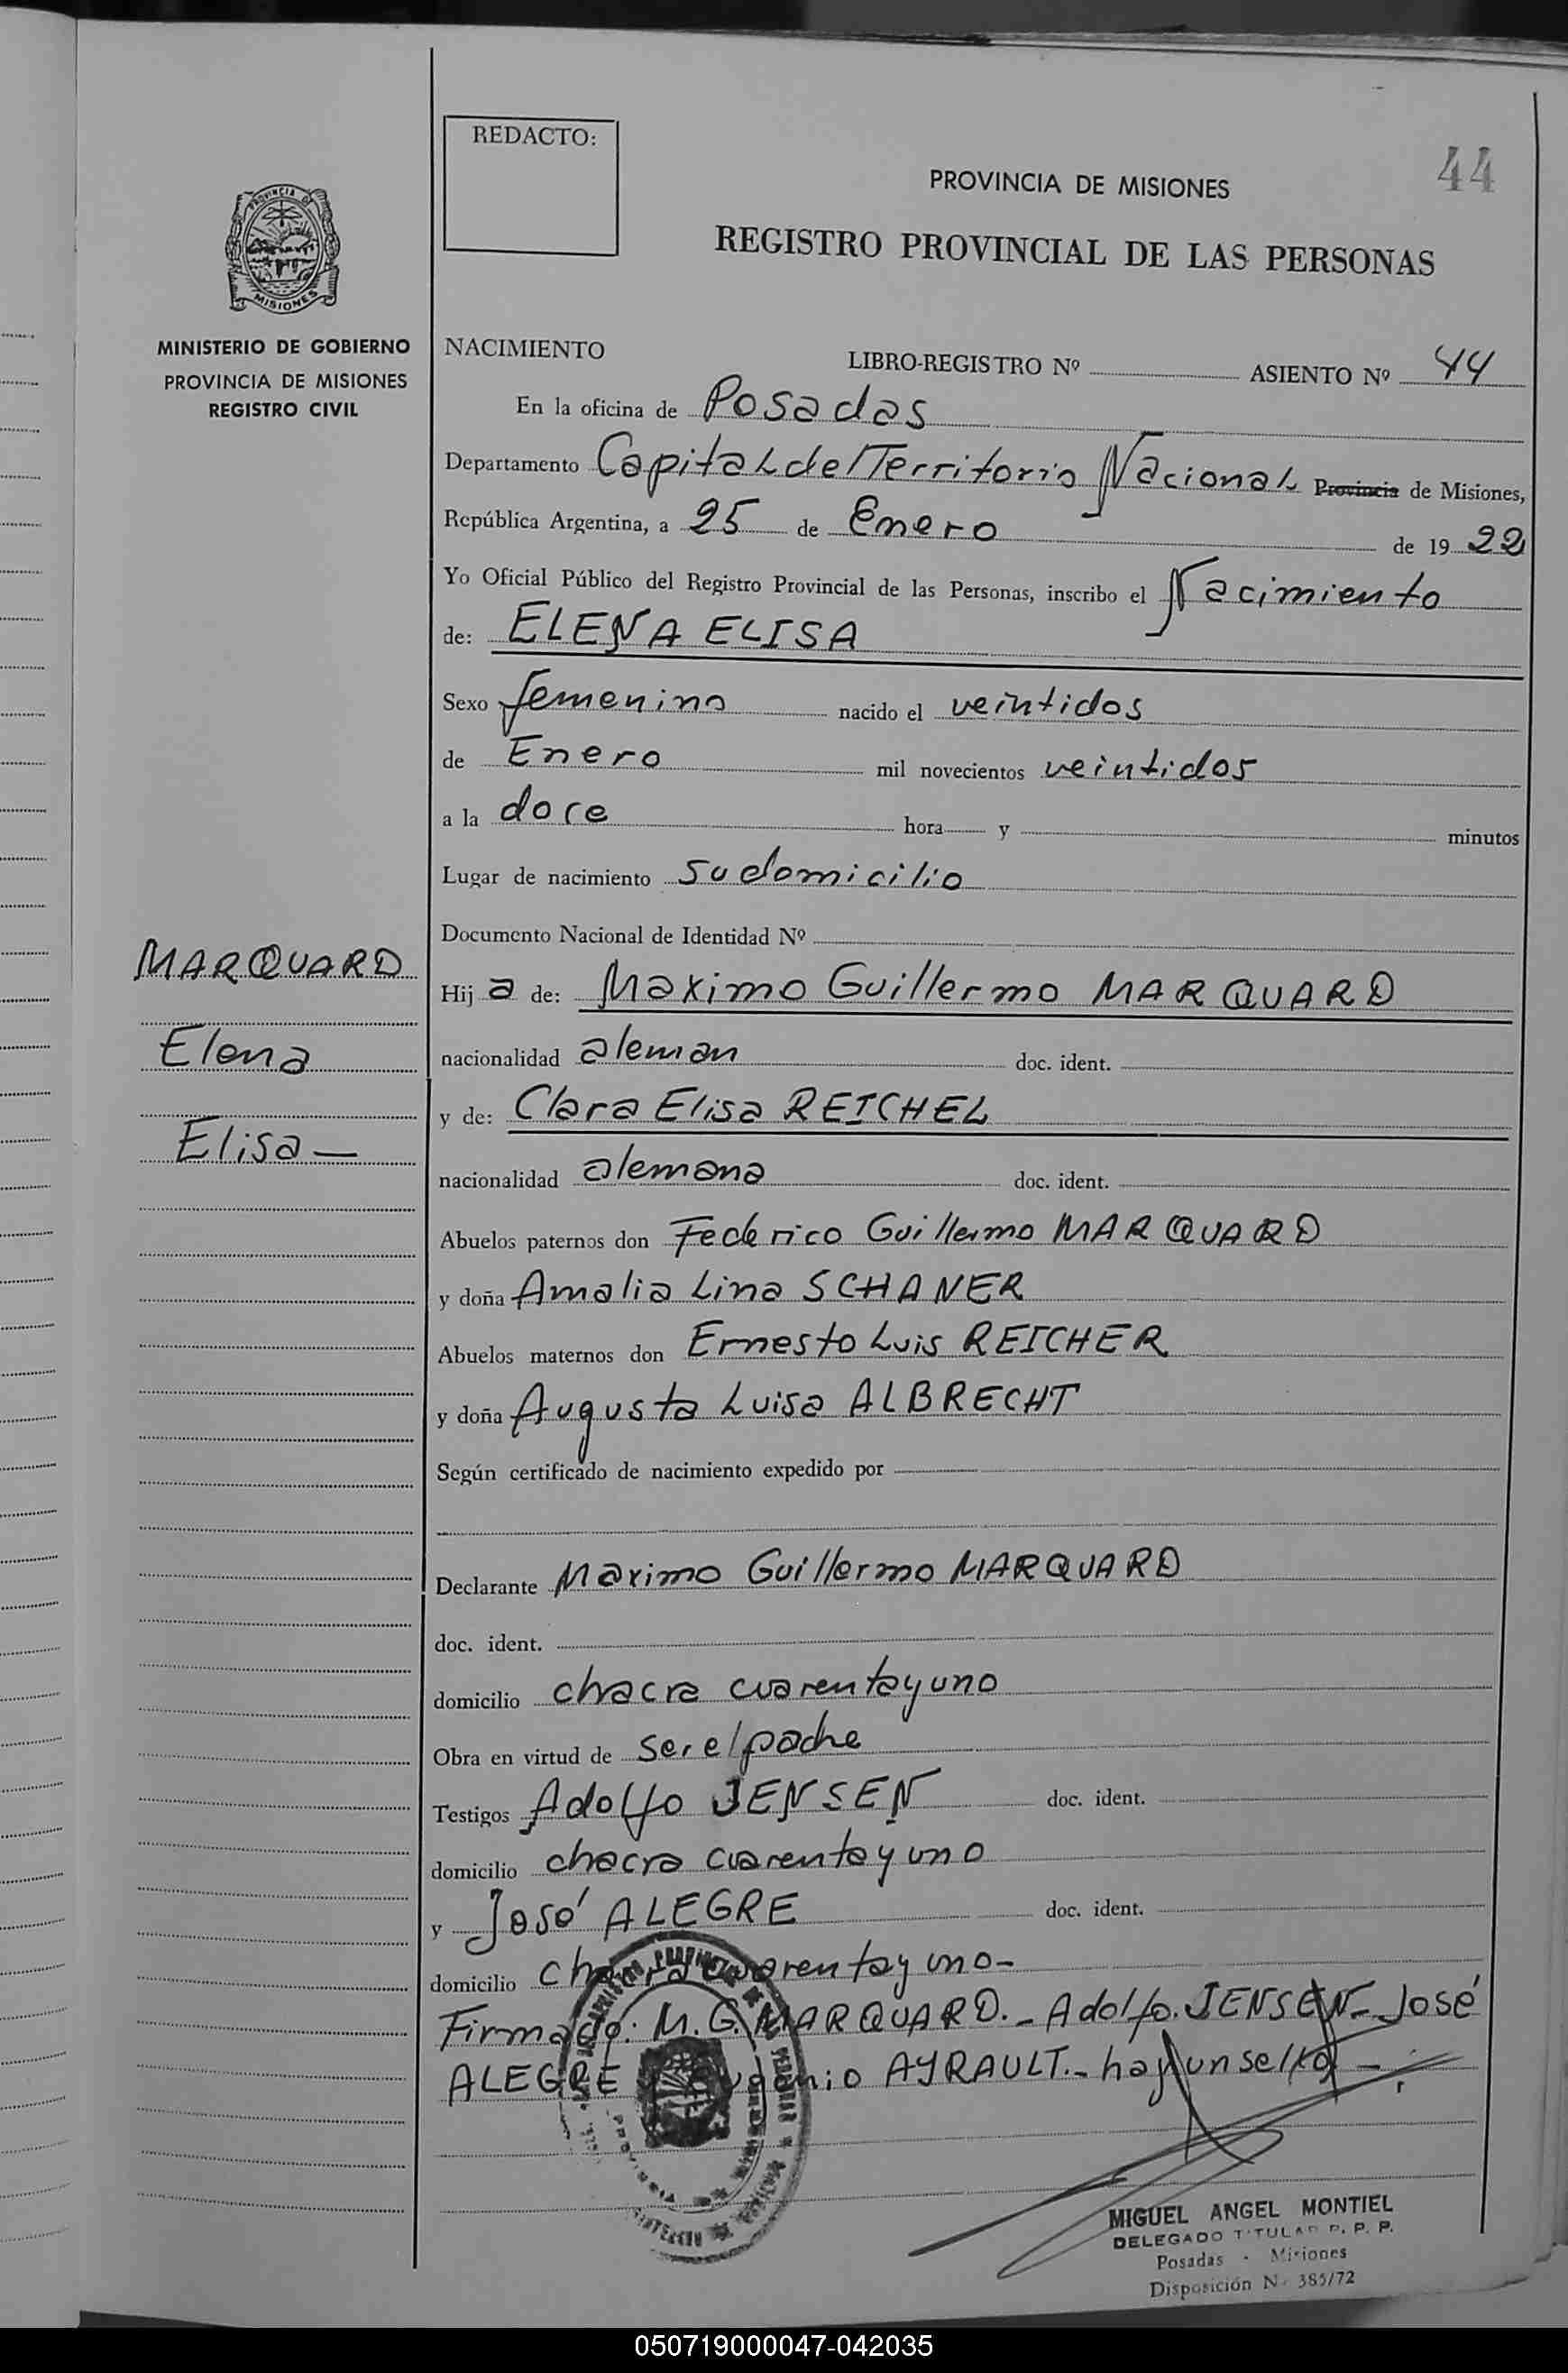 REDACTO:
44
PROVINCIA DE MISIONES
REGISTRO PROVINCIAL DE LAS PERSONAS
PROVINCIA DE
MISIONES
MINISTERIO DE GOBIERNO
PROVINCIA DE MISIONES
REGISTRO CIVIL
NACIMIENTO LIBRO-REGISTRO Nº ASIENTO Nº 44
En la oficina de Posadas
Departamento Capital del Territorio Nacional Provincia de Misiones,
República Argentina, a 25 de Enero de 1922
Yo Oficial Público del Registro Provincial de las Personas, inscribo el Nacimiento
de: ELENA ELISA
Sexo femenino nacido el veintidos
de Enero mil novecientos veintidos
a la doce hora y minutos
Lugar de nacimiento su domicilio
Documento Nacional de Identidad Nº
MARQUARD
Elena
Elisa—
Hija de: Maximo Guillermo MARQUARD
nacionalidad aleman doc. ident.
y de: Clara Elisa REICHEL
nacionalidad alemana doc. ident.
Abuelos paternos don Federico Guillermo MARQUARD
y doña Amalia Lina SCHANER
Abuelos maternos don Ernesto Luis REICHER
y doña Augusta Luisa ALBRECHT
Según certificado de nacimiento expedido por
Declarante Maximo Guillermo MARQUARD
doc. ident.
domicilio chacra cuarenta y uno
Obra en virtud de ser el padre
Testigos Adolfo JENSEN doc. ident.
domicilio chacra cuarenta y uno
y José ALEGRE doc. ident.
domicilio chacra cuarenta y uno-
Firmado: M. G. MARQUARD.- Adolfo JENSEN- José
ALEGRE Eugenio AYRAULT.- hay un sello-
MIGUEL ANGEL MONTIEL
DELEGADO TITULAR R. P. P.
Posadas - Misiones
Disposición N· 385/72
050719000047-042035